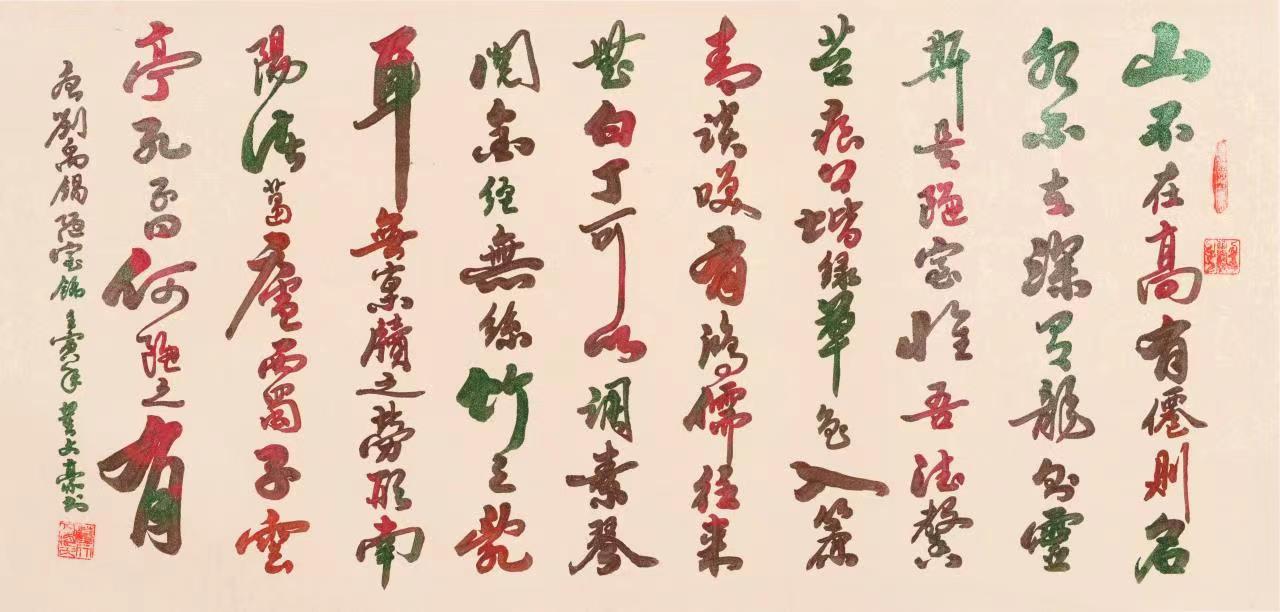 山不在高有僊則名
水不在深有龍則靈
斯是陋室惟吾德馨
苔痕上堦綠草色入簾
青談笑有鴻儒往来
無白丁可以調素琴
閱金經無絲竹之亂
耳無案牘之勞形南
陽諸葛廬西蜀子雲
亭孔子曰何陋之有
唐劉禹錫陋室銘壬寅年大豪书